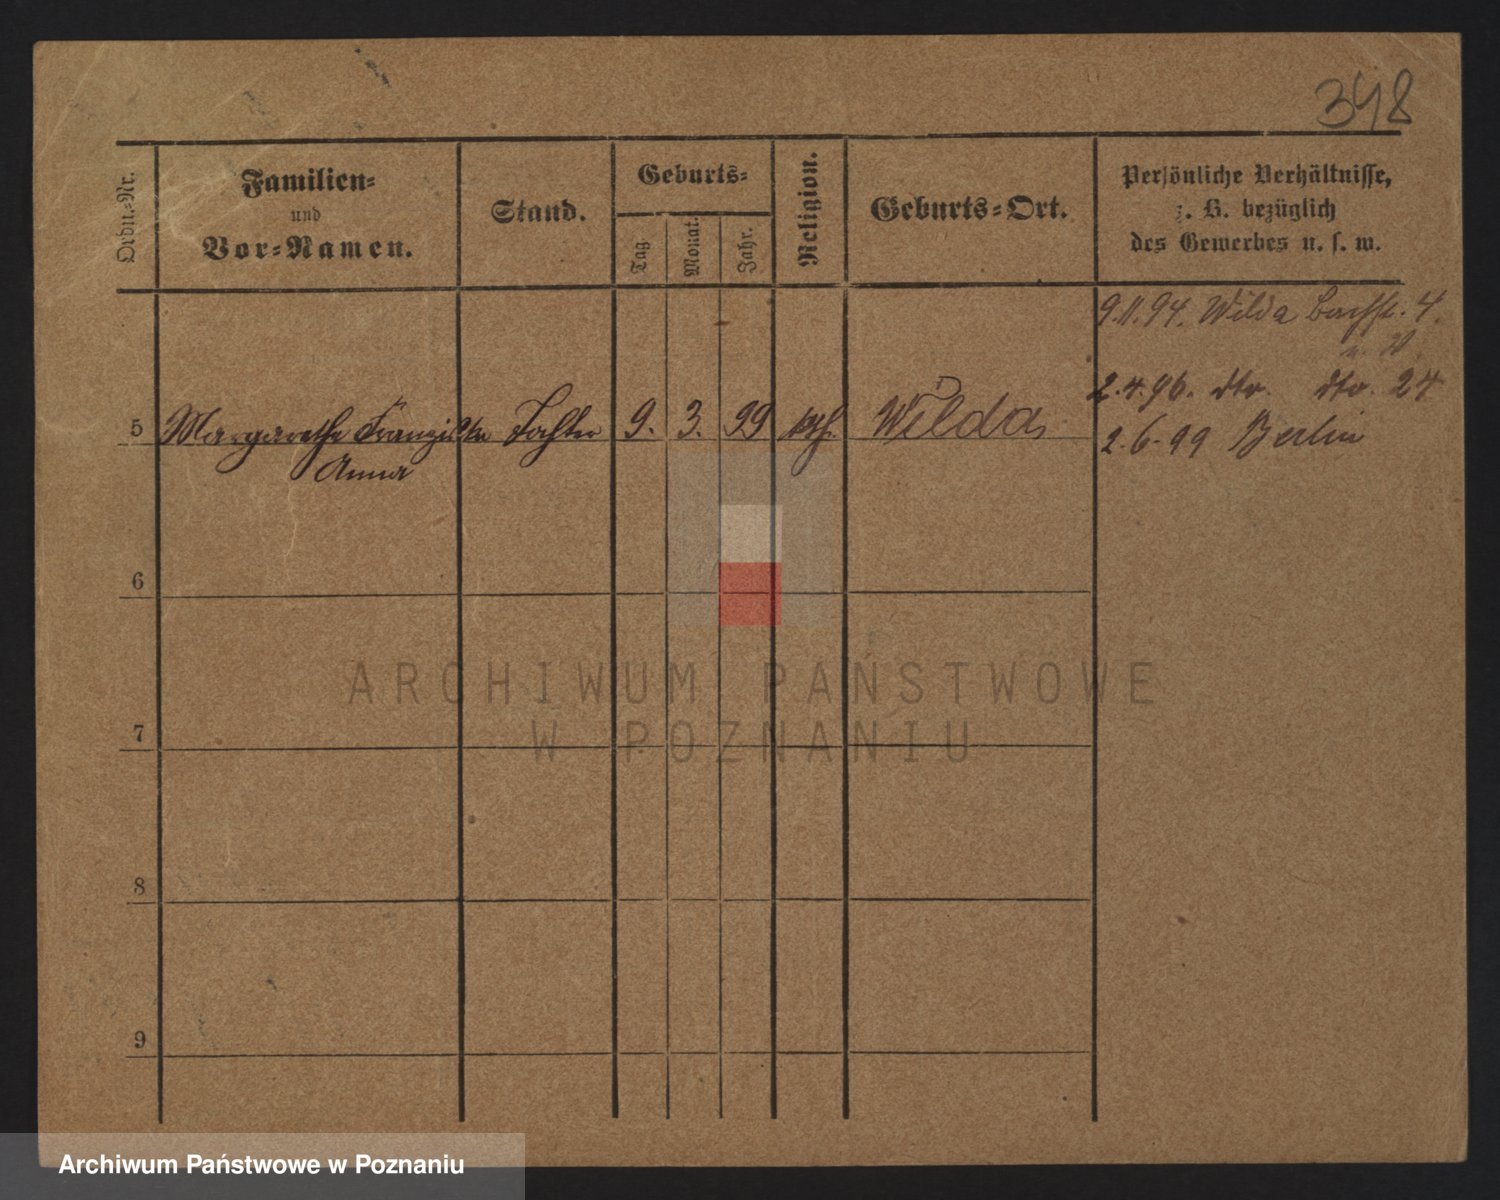 348
Ordn.-Nr.
Familien-
und
Vor-Namen.
Stand.
Geburts-
Tag.
Monat.
Jahr.
Religion.
Geburts-Ort.
Persönliche Verhältnisse,
z. B. bezüglich
des Gewerbes u. s. w.
9.11.94. Wilda Bachst. 4.
2.4.96. dto. dto. 24
5 Margarethe Franziska Tochter 9. 3. 99 kth. Wilda
2.6.99 Berlin
Anna
6
7
8
9
ARCHIWUM PAŃSTWOWE
W POZNANIU
Archiwum Państwowe w Poznaniu